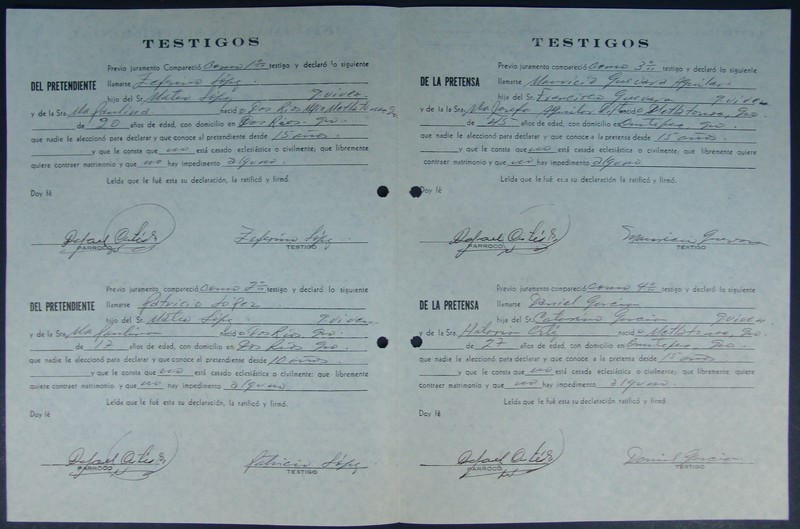 TESTIGOS
Previo juramento Compareció Como 1er testigo y declaró lo siguiente
DEL PRETENDIENTE llamarse Zeferino López
hijo del Sr. Mateo López y viven
y de la Sra. Ma Paulina nació Dos Ríos
de 20 años de edad, con domicilio en Dos Ríos Gro.
que nadie le aleccionó para declarar y que conoce al pretendiente desde 15 años
y que le consta que no está casado eclesiástica o civilmente; que libremente
quiere contraer matrimonio y que no hay impedimento alguno.
Leída que le fué esta su declaración, la ratificó y firmó.
Doy fé
Rafael Zeferino López
PARROCO TESTIGO
Previo juramento compareció Como 2o testigo y declaró lo siguiente
DEL PRETENDIENTE llamarse Patricio López
hijo del Sr. Mateo López y viven
y de la Sra. Ma Paulina nació Dos Ríos Gro.
de años de edad, con domicilio en Dos Ríos Gro.
que nadie le aleccionó para declarar y que conoce al pretendiente desde 10 años
y que le consta que no está casado eclesiástica o civilmente; que libremente
quiere contraer matrimonio y que no hay impedimento alguno.
Leída que le fué esta su declaración, la ratificó y firmó.
Doy fé
Rafael Patricio López
PARROCO TESTIGO
TESTIGOS
Previo juramento compareció Como 3er testigo y declaró lo siguiente
DE LA PRETENSA llamarse Mauricio Guevara Aguilar
hijo del Sr. Francisco Guevara y viven
y de la Sra. Ma Josefa nació Metlatonoc, Gro.
de 45 años de edad, con domicilio en Gro.
que nadie le aleccionó para declarar y que conoce a la pretensa desde 15 años
y que le consta que no está casado eclesiástica o civilmente; que libremente quiere
contraer matrimonio y que no hay impedimento alguno
Leída que le fué esta su declaración, la ratificó y firmó.
Doy fé
Rafael Mauricio Guevara
PARROCO TESTIGO
Previo juramento compareció Como 4o testigo y declaró lo siguiente
DE LA PRETENSA llamarse Daniel García
hijo del Sr. Catarino García y viven
y de la Sra. nació Metlatonoc Gro.
de 27 años de edad, con domicilio en Gro.
que nadie le aleccionó para declarar y que conoce a la pretensa desde 15 años
y que le consta que no está casado eclesiástica o civilmente; que libremente quiere
contraer matrimonio y que no hay impedimento alguno.
Leída que le fué esta su declaración, la ratificó y firmó.
Doy fé
Rafael Daniel García
PARROCO TESTIGO